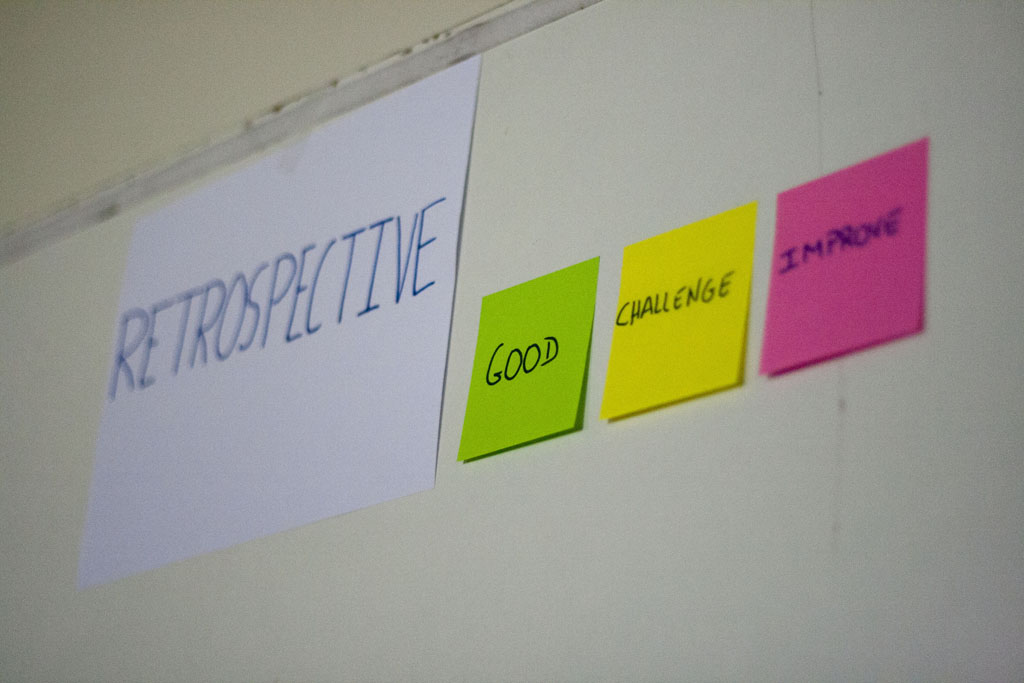 RETROSPECTIVE
GOOD
CHALLENGE
IMPROVE